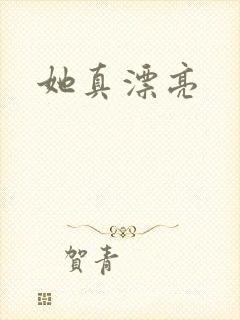 她真漂亮
賀青